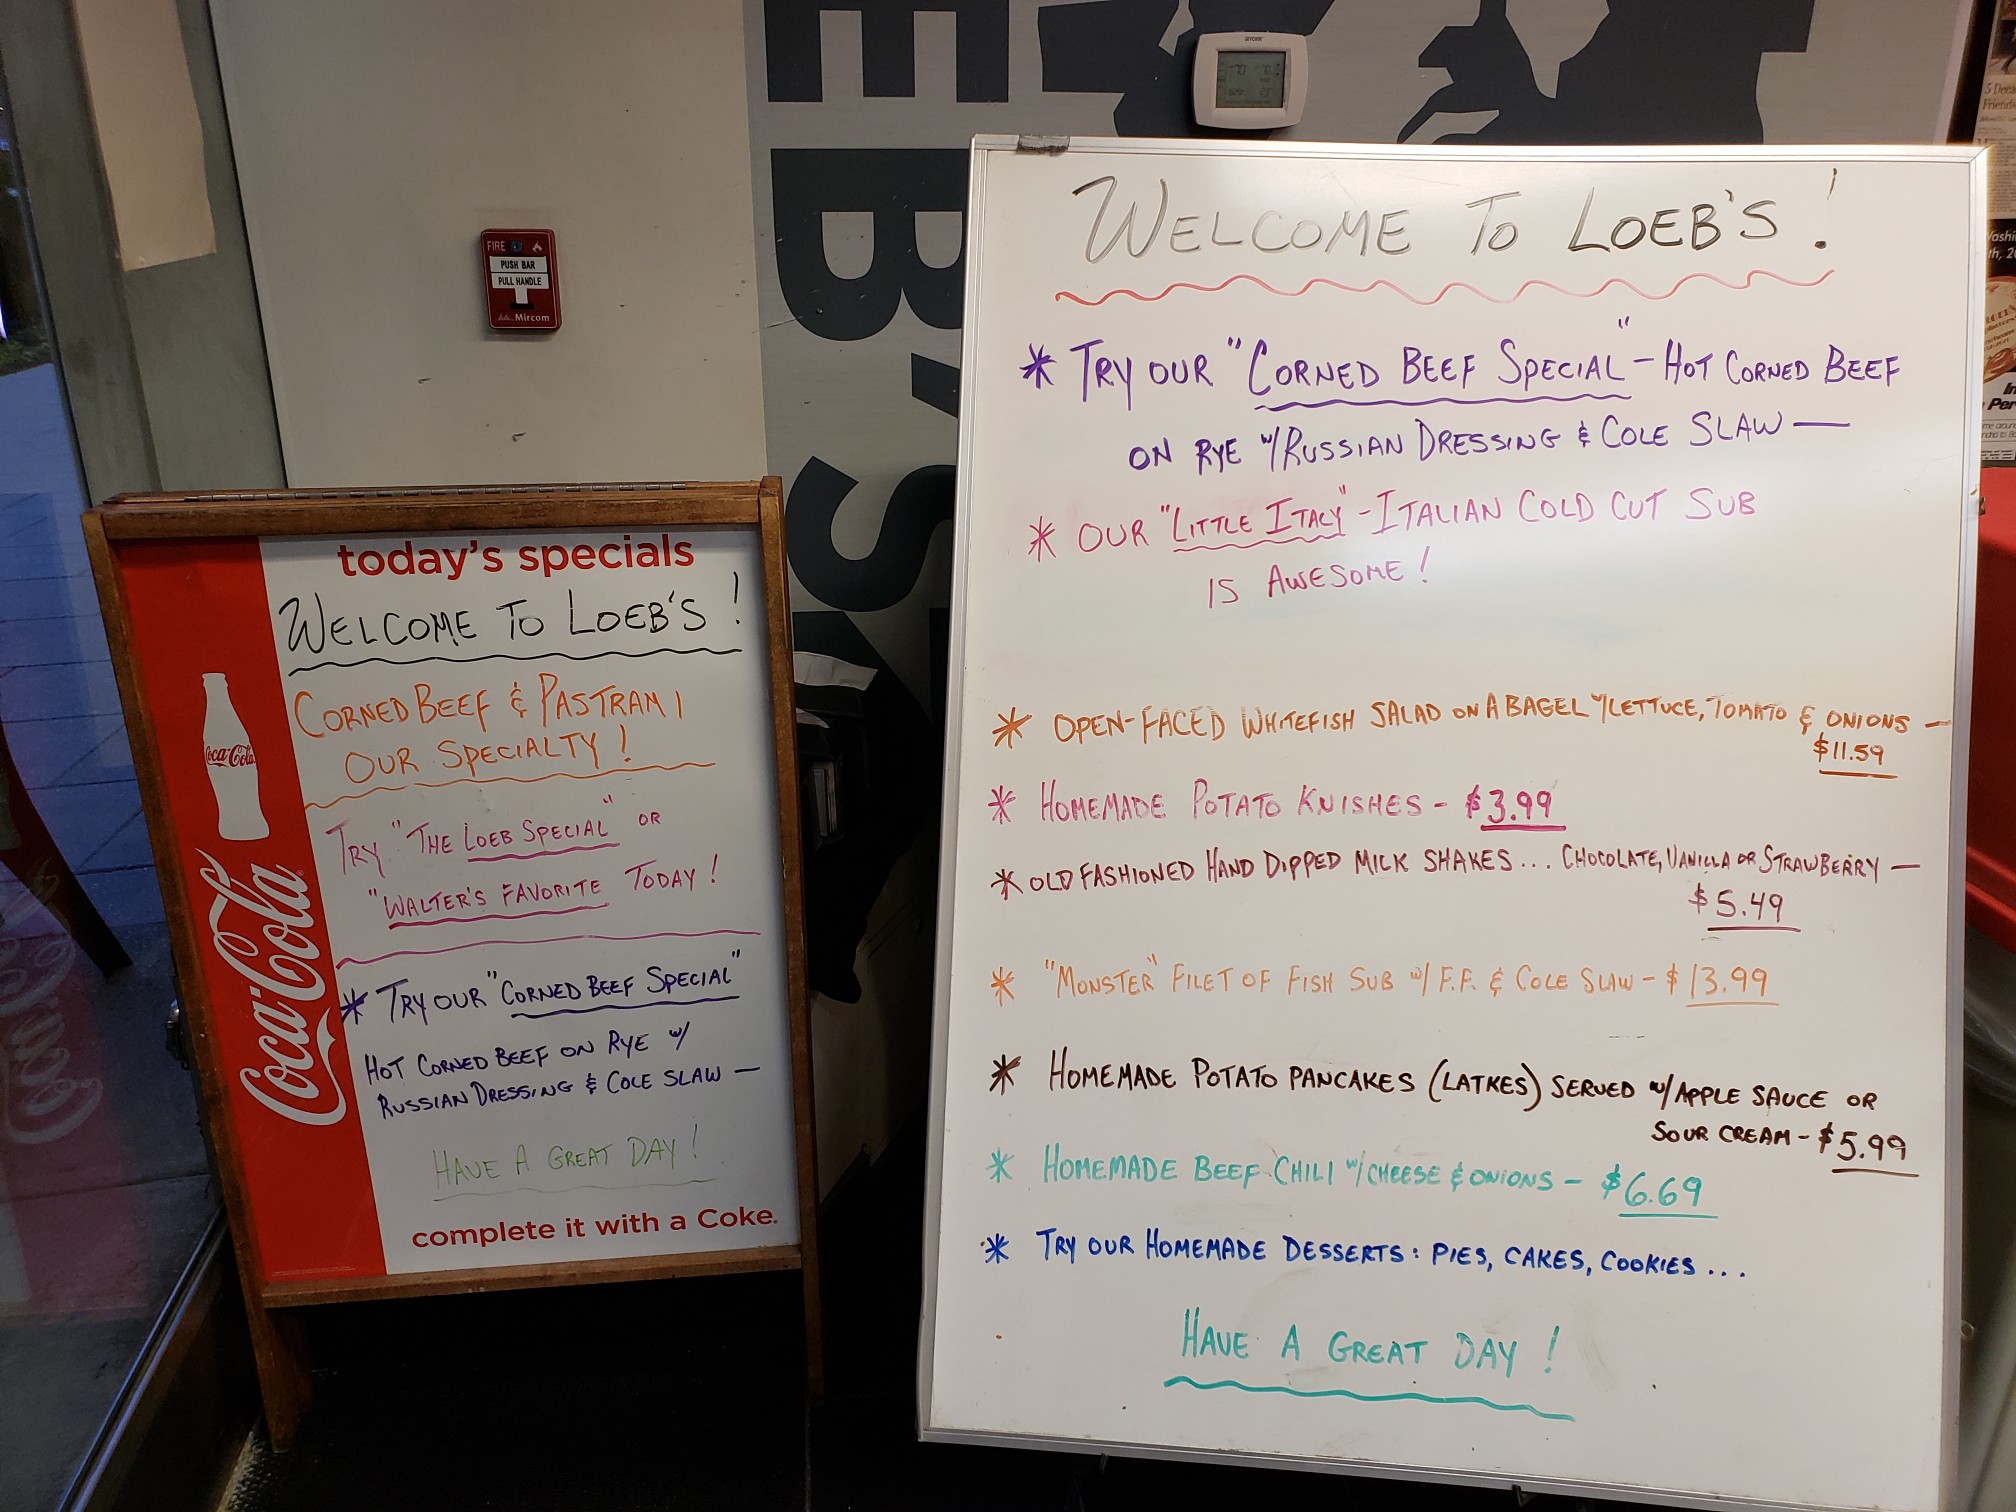 today's specials
WELCOME TO LOEB'S!
CORNED BEEF & PASTRAMI
OUR SPECIALTY!
TRY "THE LOEB SPECIAL" OR
"WALTER'S FAVORITE TODAY!
* TRY OUR "CORNED BEEF SPECIAL"
HOT CORNED BEEF ON RYE W/
RUSSIAN DRESSING & COLE SLAW —
HAVE A GREAT DAY!
complete it with a Coke.
Coca-Cola
Coca-Cola
FIRE
PUSH BAR
PULL HANDLE
Mircom
EB'S
WELCOME TO LOEB'S!
* TRY OUR "CORNED BEEF SPECIAL" - HOT CORNED BEEF
ON RYE W/RUSSIAN DRESSING & COLE SLAW —
* OUR "LITTLE ITALY" - ITALIAN COLD CUT SUB
IS AWESOME!
* OPEN-FACED WHITEFISH SALAD ON A BAGEL W/LETTUCE, TOMATO & ONIONS —
$11.59
* HOMEMADE POTATO KNISHES - $3.99
* OLD FASHIONED HAND DIPPED MILK SHAKES... CHOCOLATE, VANILLA OR STRAWBERRY —
$5.49
* "MONSTER" FILET OF FISH SUB W/ F.F. & COLE SLAW - $13.99
* HOMEMADE POTATO PANCAKES (LATKES) SERVED W/APPLE SAUCE OR
SOUR CREAM - $5.99
* HOMEMADE BEEF CHILI W/CHEESE & ONIONS - $6.69
* TRY OUR HOMEMADE DESSERTS: PIES, CAKES, COOKIES...
HAVE A GREAT DAY!